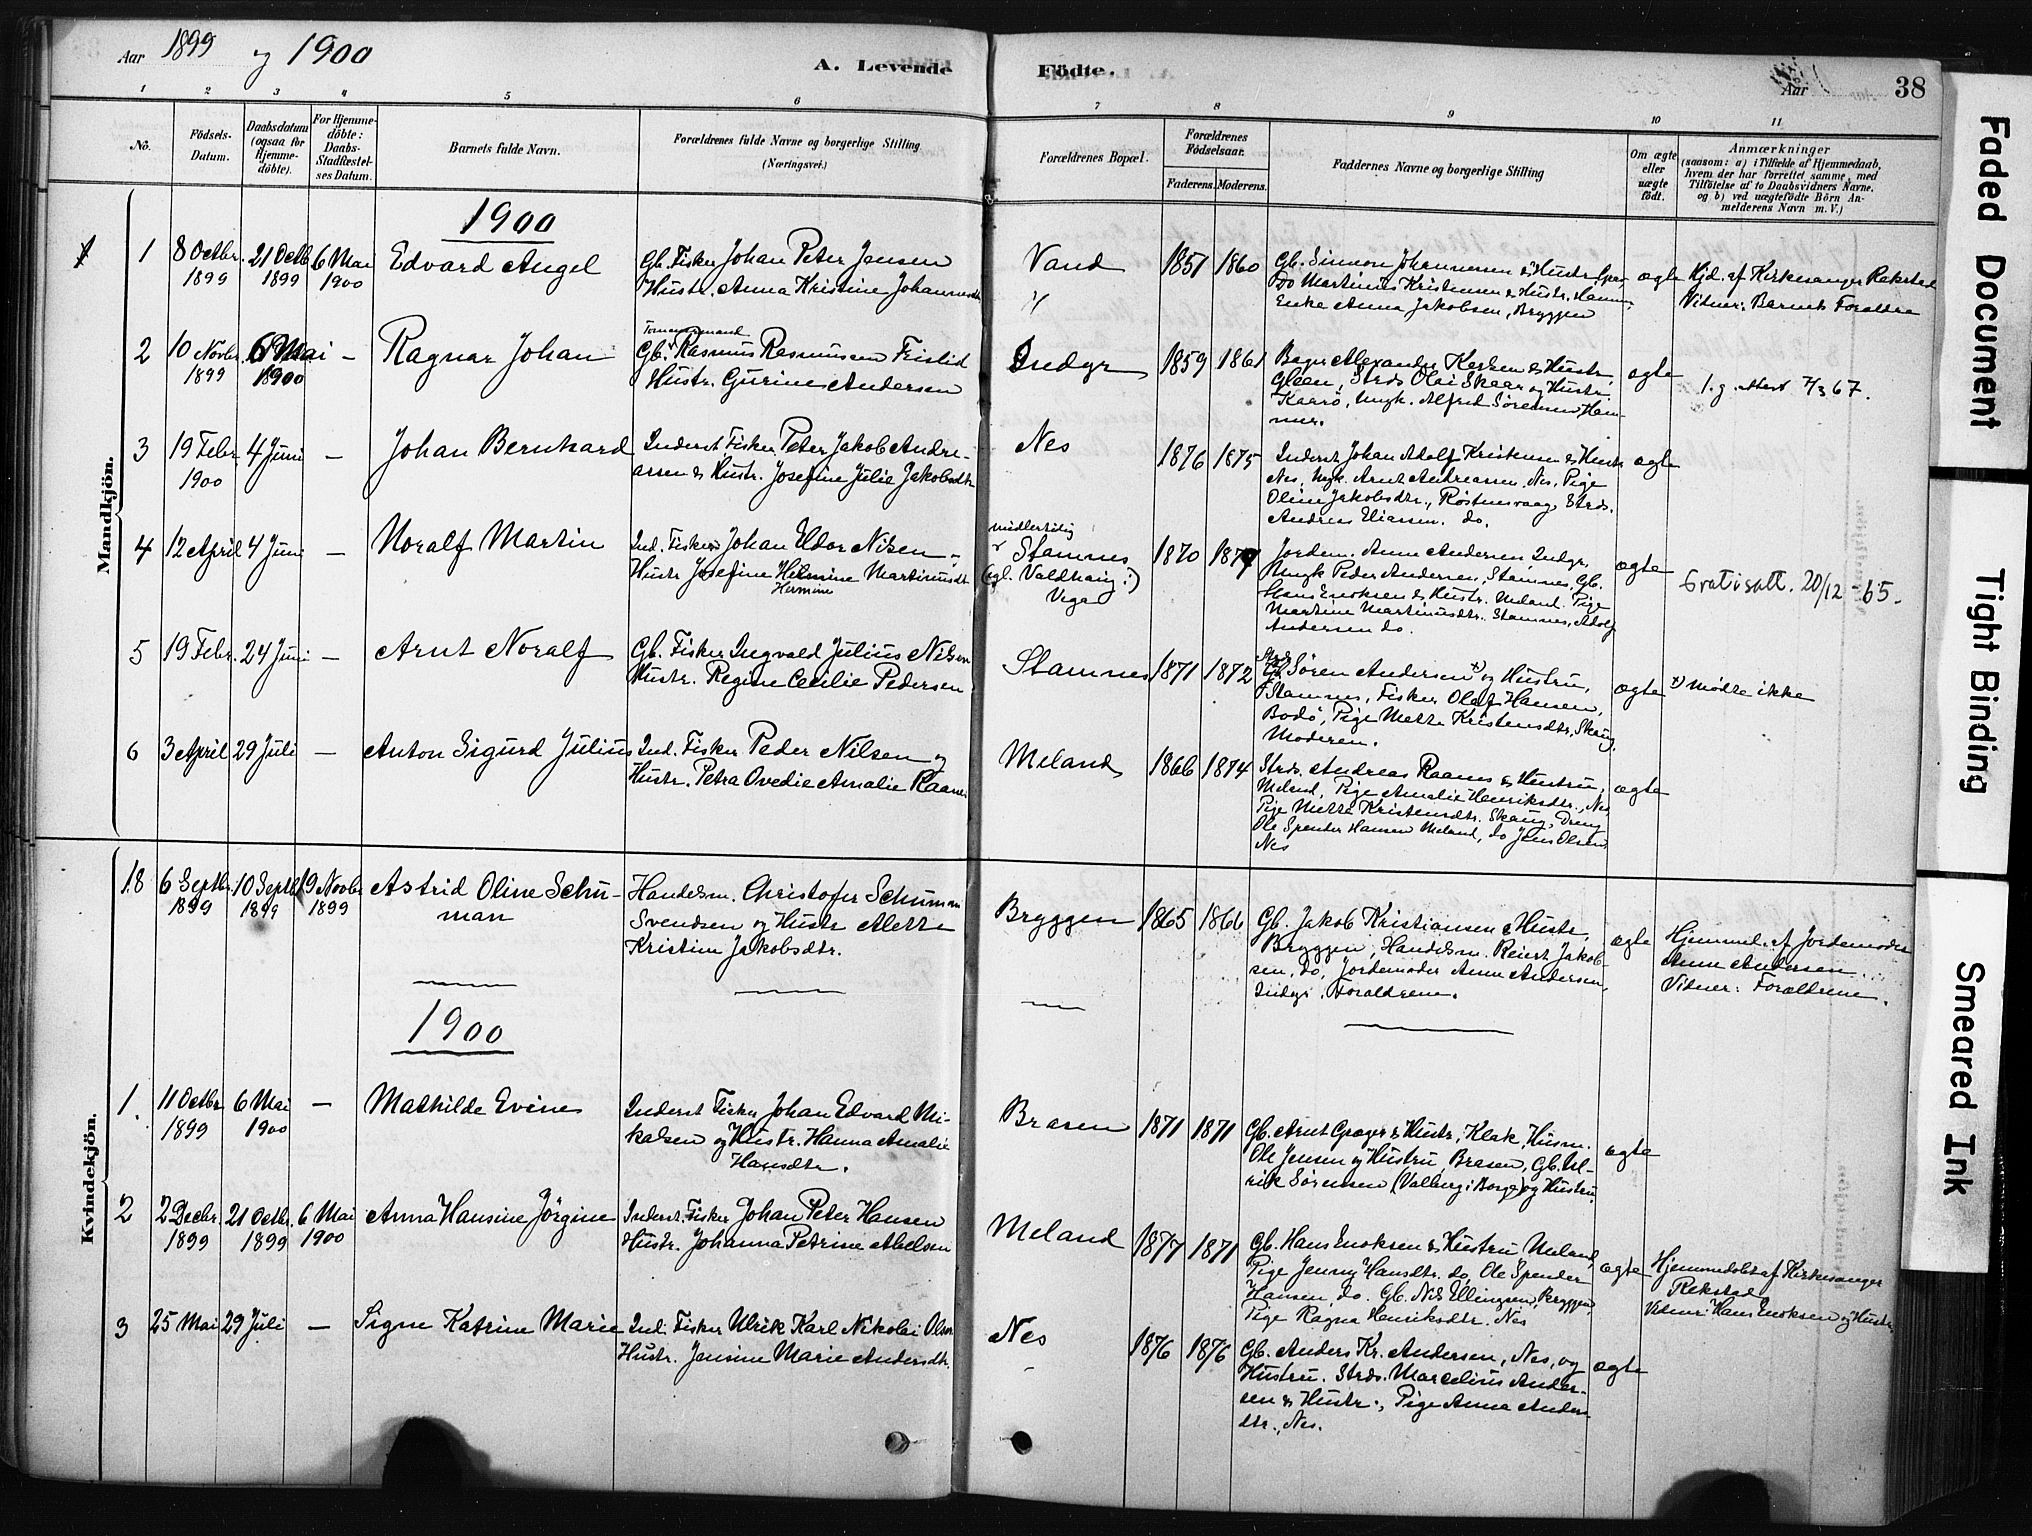 Aar 1899 og 1900
A. Levende Födte.
Aar
38
1 2 3 4 5 6 7 8 9 10 11
No.
Födsels-Datum.
Daabsdatum (ogsaa for Hjemme-döbte).
For Hjemme-döbte: Daabs-Stadfæstel-ses Datum.
Barnets fulde Navn.
Forældrenes fulde Navne og borgerlige Stilling (Næringsvei.)
Forældrenes Bopæl.
Forældrenes Födselsaar.
Faderens. Moderens.
Faddernes Navne og borgerlige Stilling
Om ægte eller uægte födt.
Anmærkninger
(saasom: a) i Tilfælde af Hjemmedaab,
hvem der har forrettet samme, med
Tilföielse af to Daabsvidners Navne,
og b) ved uægtefödte Börn An-
melderens Navn m. V.)
Mandkjön.
1900
1 8 Octbr. 1899 21 Octb 1899 6 Mai 1900 Edvard Angel
Gb. Fisker Johan Peter Jensen
Hustr. Anna Kristine Johannesdtr
Vand 1851 1860
Gb. Simon Johannesen & Hustr,
Do Martinus Kristensen & Hustr,
Enke Anna Jakobsen, Bryggen
ægte
Hjd. af Kirkesanger Rekstad
Vidner: Barnets Forældre
2 10 Novbr. 1899 6 Mai 1900 — Ragnar Johan
Tømmermand
Gb. Rasmus Rasmussen Feislid
Hustr. Gurine Andersen
Indyr 1859 1861
Bager Alexander & Hustr
Gleen, Strds Olai Skaar og Hustr
Kaarø, Ungk. Alfred Sörensen Hem-
nes.
ægte
l.g. attest 7/3 67.
3 19 Febr. 1900 4 Juni — Johan Bernhard
Inderst Fisker Peter Jakob Andre-
assen & Hustr. Josefine Julie Jakobsdtr
Nes 1876 1875
Inderst Johan Adolf Kristensen & Hustr
Nes, Ungk. Arnt Andreassen, Nes, Pige
Oline Jakobsdtr., Røstensvaag, Strds.
Andreas Eliasen. do.
ægte
4 12 April 4 Juni — Noralf Martin
Ind. Fisker Johan Edor Nilsen
Hustr Josefine Helmine Martinusdtr
Hermine
midlertidig
Stamnes
(gl. Valdhaug i)
Vega
1870 1879
Jordem. Anne Andersen, Indyr,
Ungk Peder Andersen, Stamnes, Gb.
Hans Enoksen & Hustr. Meland. Pige
Martine Martinusdtr. Stamnes, Adolf
Andersen do.
ægte
Gratisatt. 20/12 -65.
5 19 Febr. 24 Juni — Arnt Noralf
Gb. Fisker Ingvald Julius Nilsen
Hustr. Regine Cecilie Pedersen
Stamnes 1871 1872
Gb. Søren Andersen x) og Hustru,
Stamnes, Fisker Olaf Hansen,
Bodö, Pige Mette Kristensdtr, Skaug,
Moderen.
ægte
x) Mødte ikke
6 3 April 29 Juli — Anton Sigurd Julius
Ind. Fisker Peder Nilsen og
Hustr. Petra Ovedie Amalie Raanes
Meland 1866 1874
Strds. Andreas Raanes & Hustru,
Meland, Pige Amalie Henriksdtr., Nes,
Pige Mette Kristensdtr. Skaug, Dreng
Ole Spenter Hansen Meland, do Jens Olsen
Nes
ægte
Kvindekjön.
18 6 Septbr. 1899 10 Septb 1899 19 Novbr 1899 Astrid Oline Schu-
man
Handelsm. Christofer Schuman
Svendsen og Hustr Alette
Kristine Jakobsdtr.
Bryggen 1865 1866
Gb. Jakob Kristiansen & Hustr,
Bryggen, Handelsm. Reiert Jakob-
sen, do, Jordemoder Anne Andersen,
Indyr. Forældrene.
ægte
Hjemmed. af Jordemoder
Anne Andersen
Vidner: Forældrene.
1900
1. 11 Octbr 1899 6 Mai 1900 — Mathilde Evine
Inderst Fisker Johan Edvard Mi-
kalsen og Hustr. Hanna Amalie
Hansdtr.
Brasen 1871 1871
Gb. Arnt Grøger & Hustr, Klæk, Husm.
Ole Jensen og Hustru, Brasen, Gb. Ul-
rik Sørensen (Valberg i Borge) og Hustru
ægte
2 2 Decbr. 1899 21 Octb. 1899 6 Mai 1900 Anna Hansine Jörgine
Inderst. Fisker Johan Peter Hansen
Hustr. Johanna Petrine Abelsen
Meland 1877 1871
Gb. Hans Enoksen & Hustru Meland,
Pige Jenny Hansdtr. do, Ole Spenter
Hansen, do. Gb. Nils Ellingsen, Bryggen
Pige Ragna Henriksdtr. Nes
ægte
Hjemmedöbt af Kirkesanger
Rekstad
Vidner: Hans Enoksen og Hustr.
3 25 Mai 29 Juli — Signe Katrine Marie
Ind. Fisker Ulrik Karl Nikolai Olsen
Hustr. Jensine Marie Andersdtr.
Nes 1876 1876
Gb. Anders Kr. Andersen, Nes, og
Hustru. Strds. Marcelius Ander-
sen & Hustr., Pige Anna Anders
dtr., Nes.
ægte
Faded Document
Tight Binding
Smeared Ink